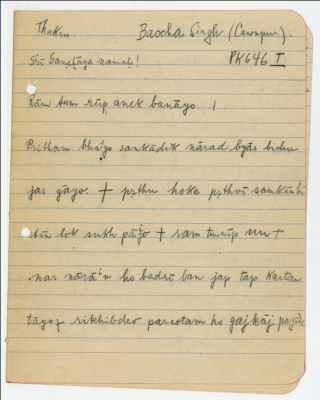 Thakur Baccha Singh (Cawnpur).
Śrī Gaṇeśāya namaḥ! PK646 I
Rām tum rūp anek banāyo |
Pritham bhaiyo sankādik nārad byās bidur
jas gāyo. + pṛthu hoke pṛthvī
tīn lok sukh pāiyo + ram
nar nārāin ho badrī ban jap tap kartan
rikhibdev parsotam ho gajkāj